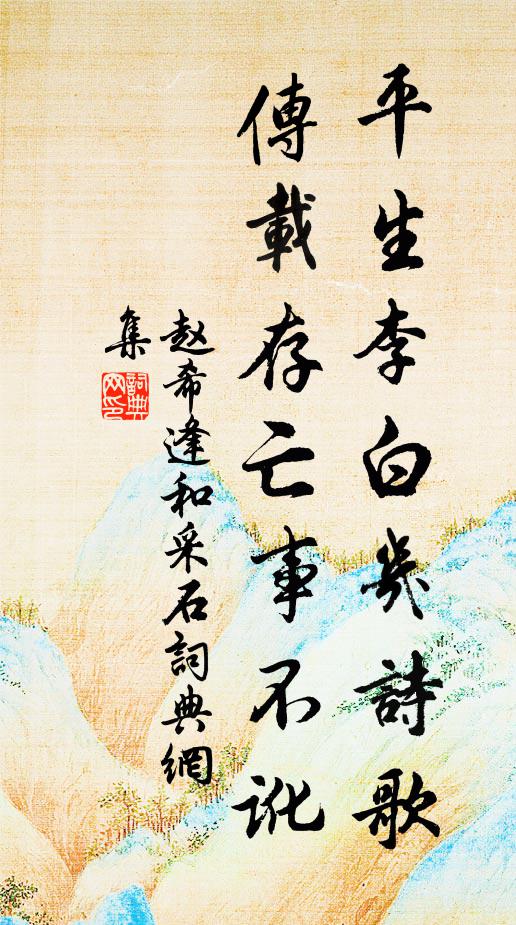 平生李白幾詩歌
傳載存亡事不訛
赵希逢和采石詞典網
集
詞典網印